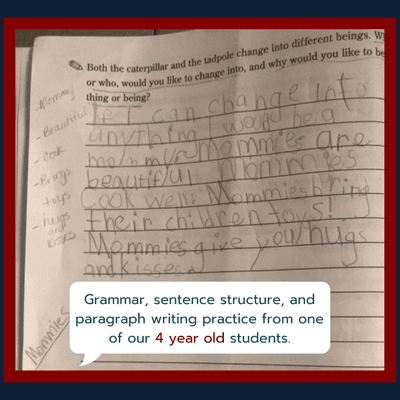 Both the caterpillar and the tadpole change into different beings. W
or who, would you like to change into, and why would you like to be
thing or being?
- Mommy
- Beautiful
- Cook
- Brings
toys
- hugs
and
kisses
If I can change Into
anything I would be a
mommy. Mommies are
beautiful. Mommies
cook well. Mommies bring
their children toys!
Mommies give you hugs
and kisses.
Mommies
Grammar, sentence structure, and
paragraph writing practice from one
of our 4 year old students.